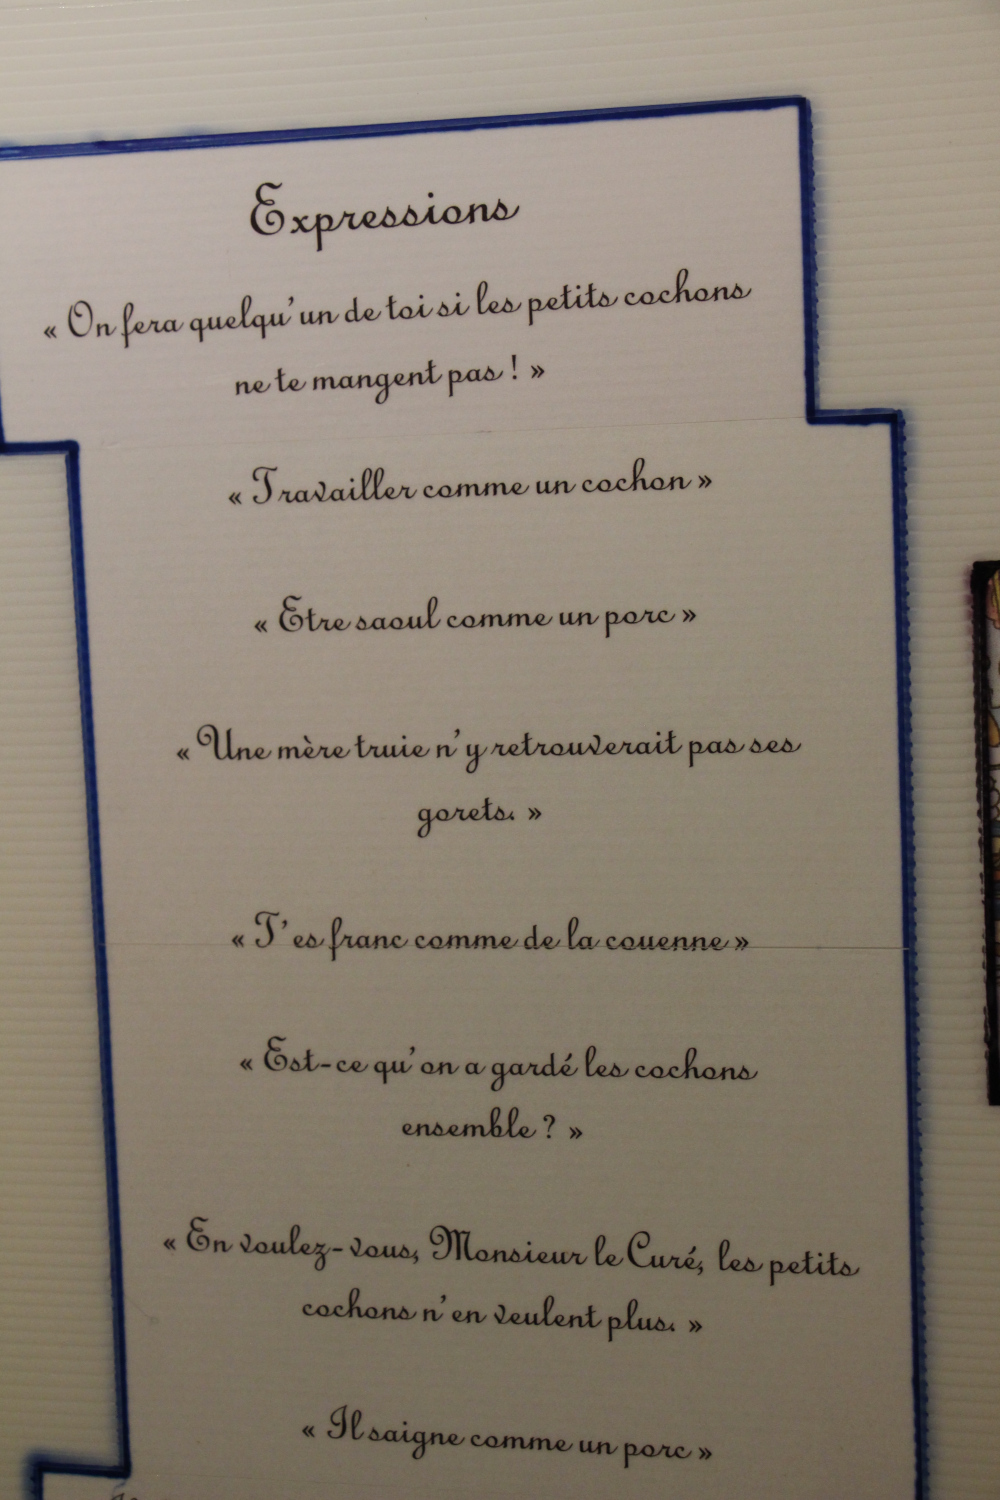 Expressions
« On fera quelqu'un de toi si les petits cochons
ne te mangent pas ! »
« Travailler comme un cochon »
« Etre saoul comme un porc »
« Une mère truie n'y retrouverait pas ses
gorets. »
« T'es franc comme de la couenne »
« Est-ce qu'on a gardé les cochons
ensemble ? »
« En voulez-vous, Monsieur le Curé, les petits
cochons n'en veulent plus. »
« Il saigne comme un porc »